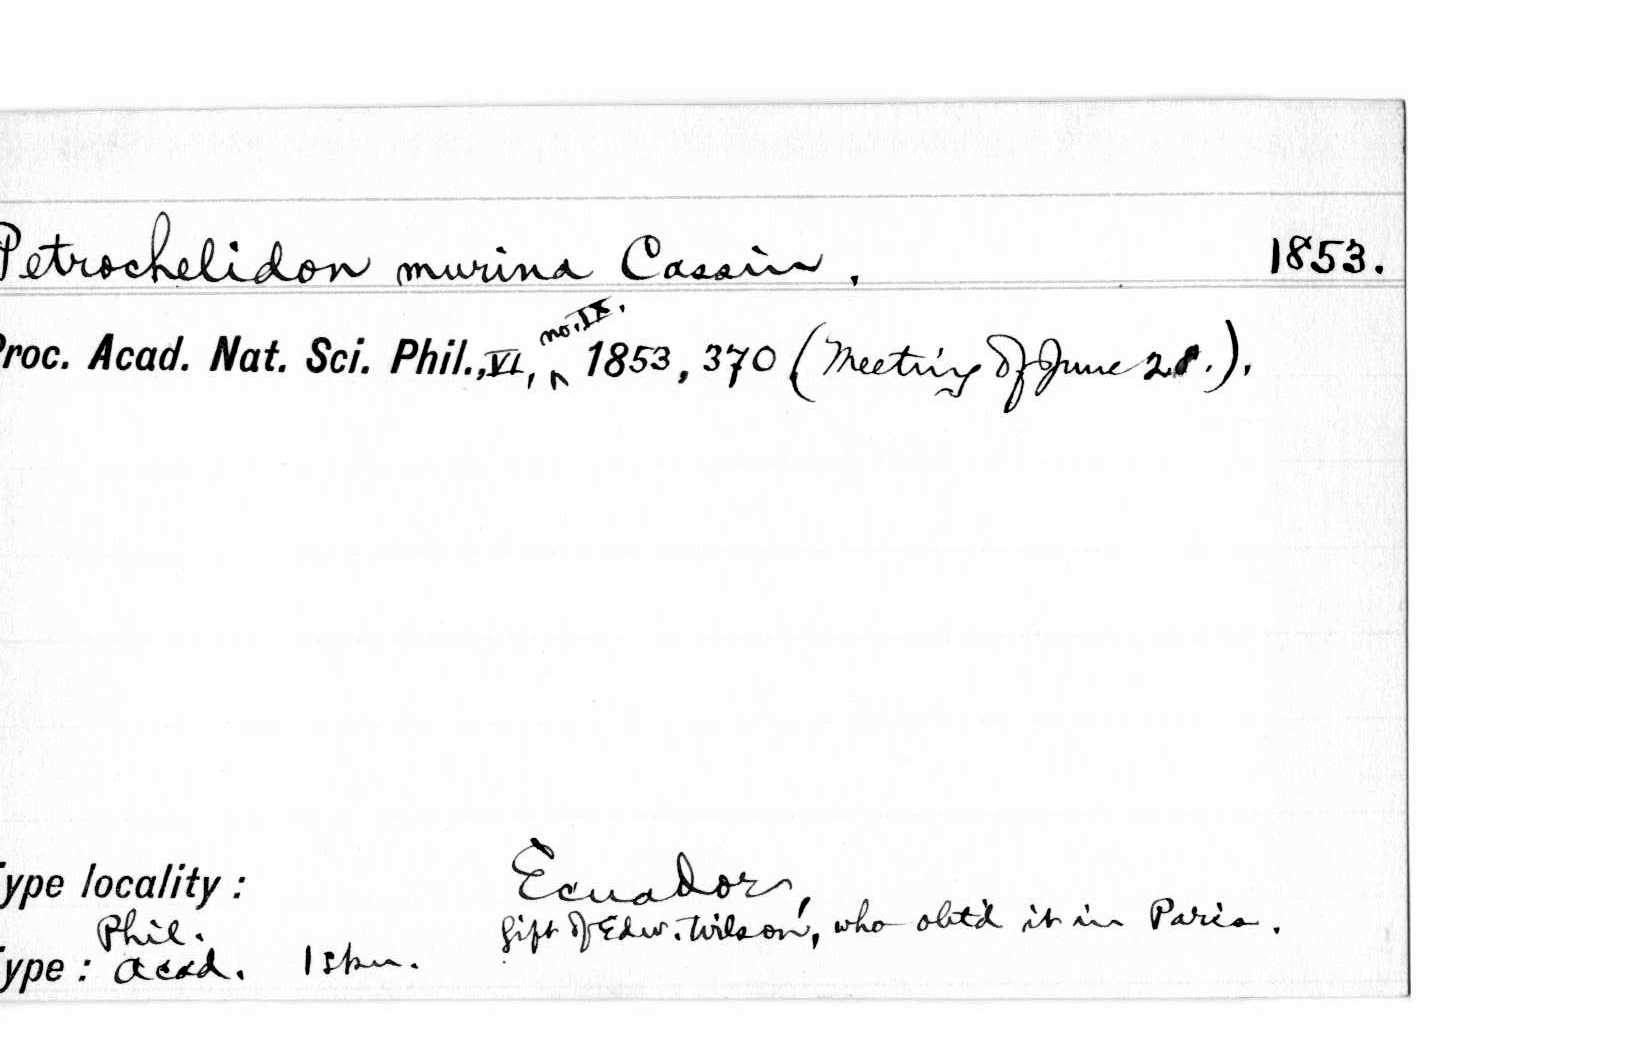 Petrochelidon murina Cassin. 1853.
Proc. Acad. Nat. Sci. Phil., VI, no. IX. 1853, 370 (Meeting of June 28.).
Type locality: Ecuador,
Phil. Gift of Edw. Wilson, who obt'd it in Paris.
Type: Acad. 1 skn.